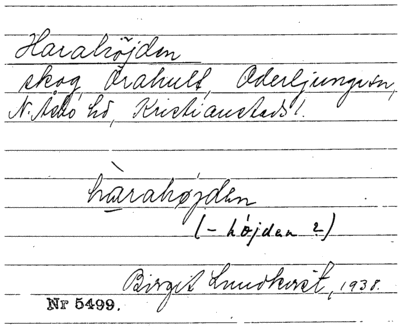 Harahöjden
skog, Örahult, Oderljunga sn,
N. Åsbo hd, Kristianstads l.
hàrahøjden
(- höjden ?)
Birgit Lundkvist, 1938.
Nr 5499.